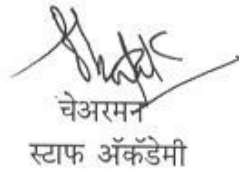 चेअरमन
स्टाफ ॲकॅडेमी